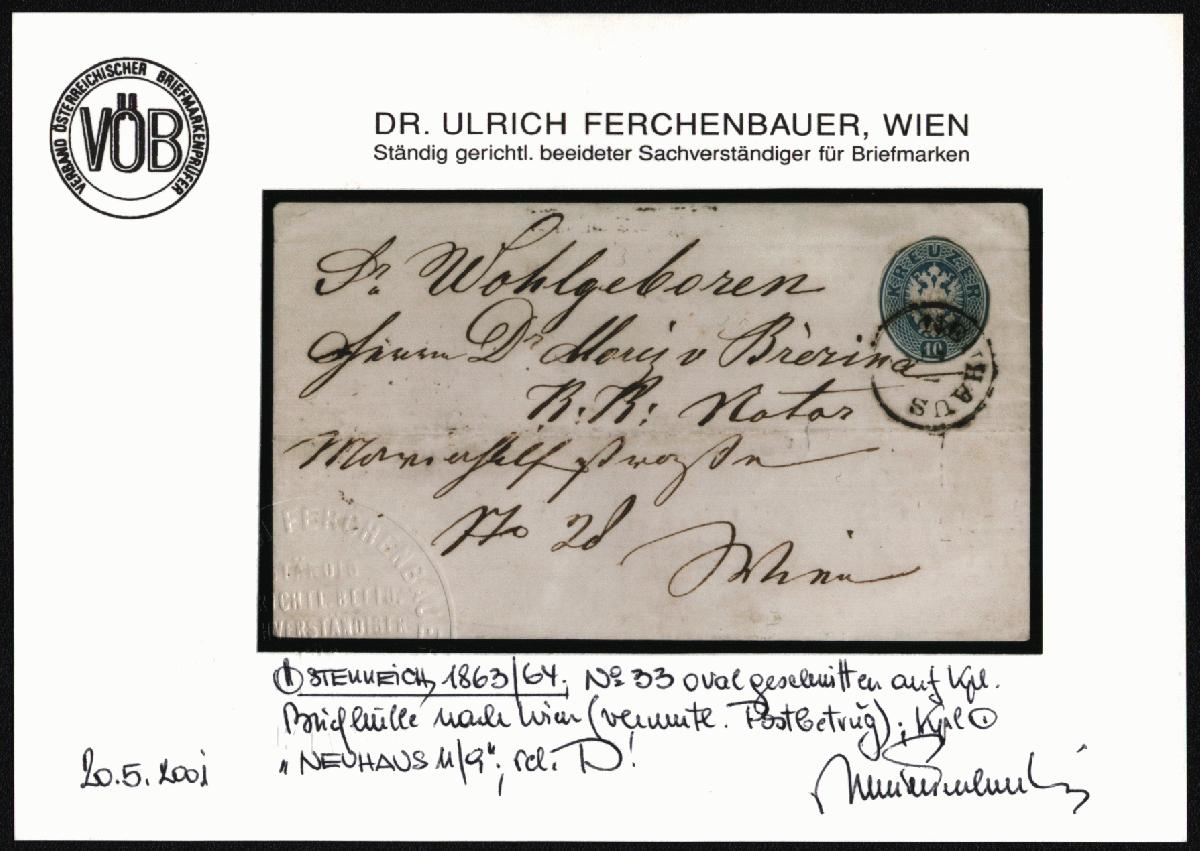 VERBAND ÖSTERREICHISCHER BRIEFMARKENPRÜFER
VÖB
DR. ULRICH FERCHENBAUER, WIEN
Ständig gerichtl. beeideter Sachverständiger für Briefmarken
Sr. Wohlgeboren
KREUZER
10
Herrn Dr Moriz v Brèzina
NEUHAUS
K: K: Notar
Mariahilfstraße
No 28
Wien
FERCHENBAUE
STÄNDIG
ICHTL. BEEID.
HVERSTÄNDIGER
ÖSTERREICH 1863/64, No 33 oval geschnitten auf Kpl.
Briefhülle nach Wien (vermutl. Postbetrug); Kpl
"NEUHAUS 11/9",
20.5.2001